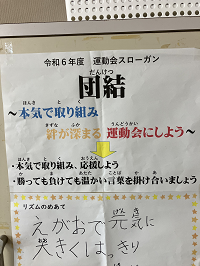 令和6年度　運動会スローガン
団結
～本気で取り組み
絆が深まる 運動会にしよう～
・本気で取り組み、応援しよう
・勝っても負けても温かい言葉を掛け合いましょう
リズムのめあて
えがおで元気に
大きくはっきり